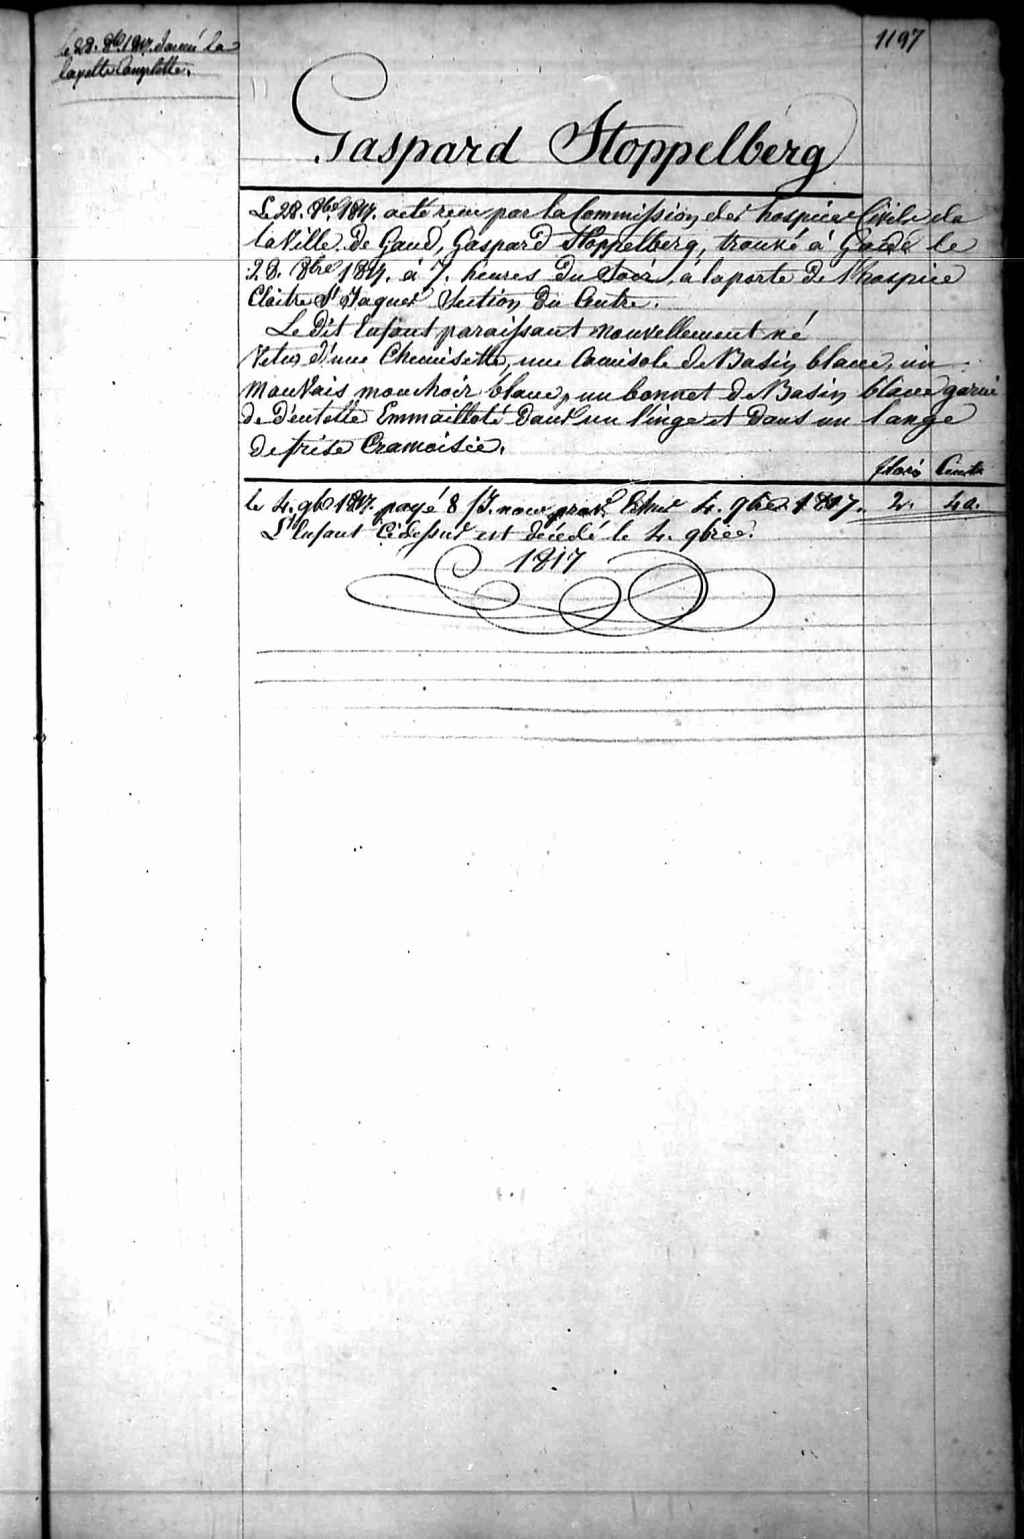 le 28. 8bre 1817. donné la
layette Complette.
1197
Gaspard Stoppelberg
Le 28. 8bre 1817. acte reçu par la Commission des hospices Civils de
la Ville de Gand, Gaspard Stoppelberg, trouvé à Gand le
28. 8bre 1817. à 7. heures du Soir, à la porte de l'hospice
Cloitre St Jaques Section du Centre.
Le dit Enfant paraissant nouvellement né
Vetus d'une Chemisette, une Camisole de Basin blanc, un
mauvais mouchoir blanc, un bonnet de Basin blanc garni
de Dentelle Emmailloté Dans un linge et Dans un lange
de frise Cramoisie.
florins Cents
le 4. 9bre 1817. payé 8 ſ. 4. 9bre 1817. 2. 40.
L'Enfant Cidessus est décédé le 4. 9bre
1817